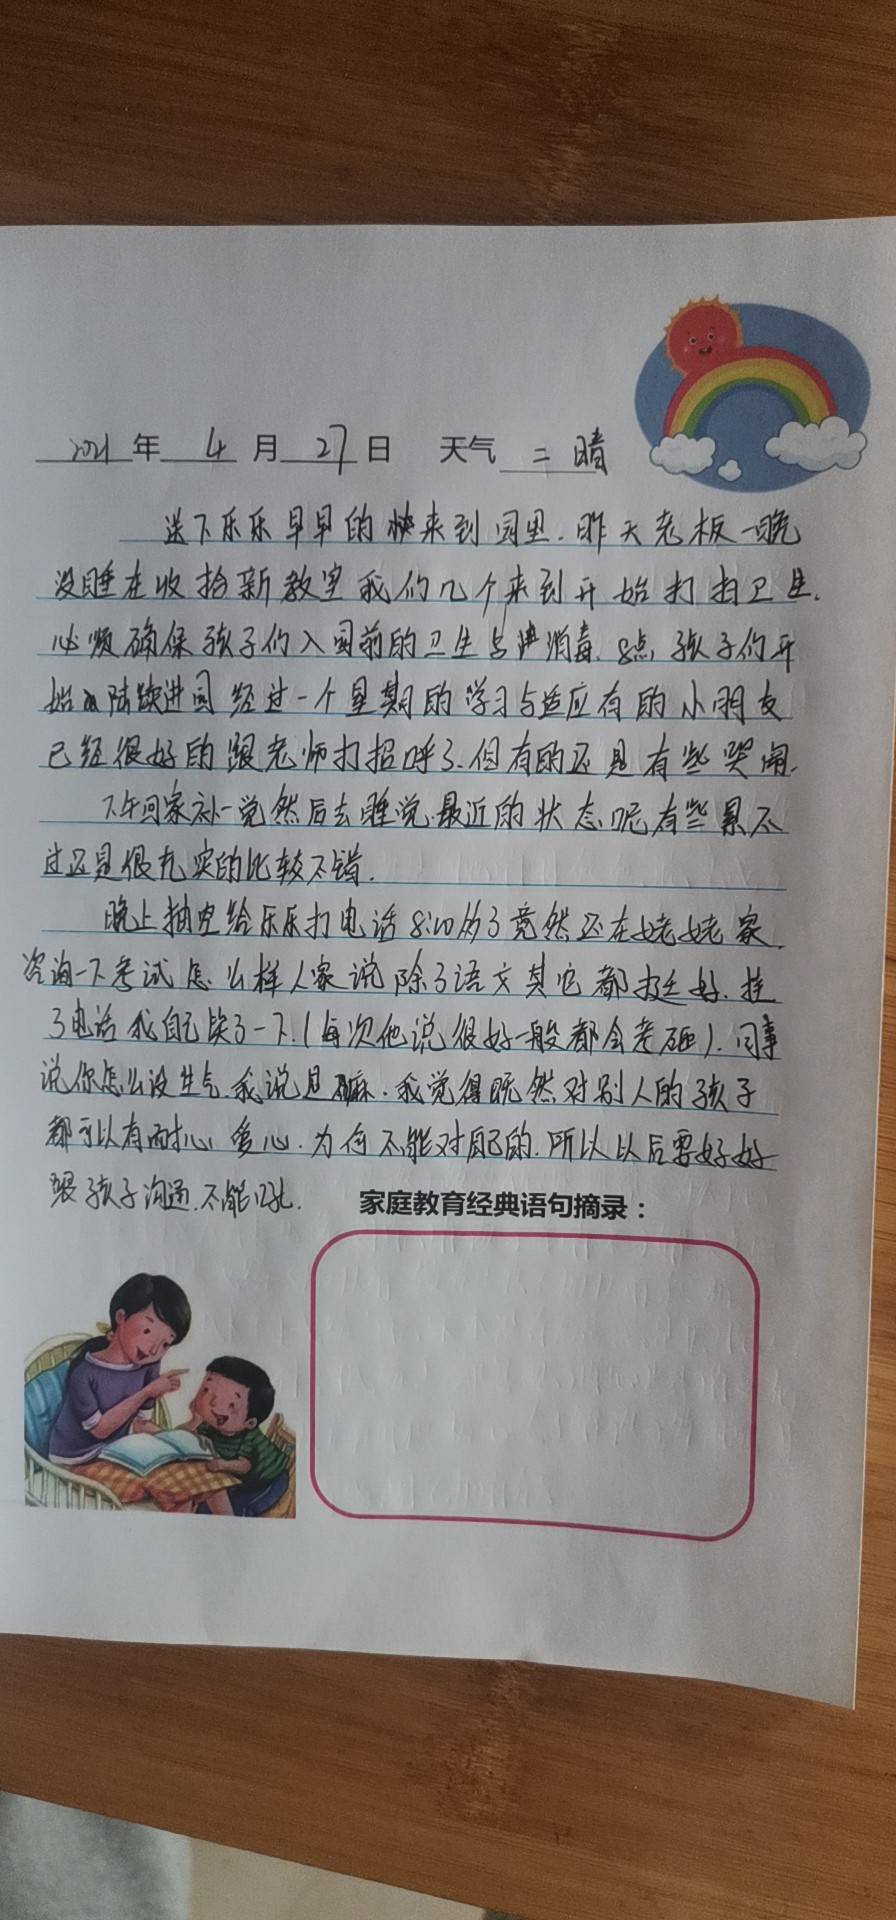 2021年 4月27日 天气 二 晴
送下乐乐早早的快来到园里.昨天老板一晚
没睡在收拾新教室我们几个来到开始打扫卫生.
必须确保孩子们入园前的卫生与消毒.8点,孩子们开
始陆续进园经过一个星期的学习与适应有的小朋友
已经很好的跟老师打招呼了.但有的还是有些哭闹.
下午回家补一觉然后去睡觉.最近的状态呢有些累不
过还是很充实的比较不错.
晚上抽空给乐乐打电话8:10的了竟然还在姥姥家.
咨询一下考试怎么样人家说除了语文其它都挺好.挂
了电话我自己笑了一下.(每次他说很好一般都会考砸).同事
说你怎么没生气.我说麻.我觉得既然对别人的孩子
都可以有耐心,爱心.为何不能对自己的.所以以后要好好
跟孩子沟通.不能吼.
家庭教育经典语句摘录：